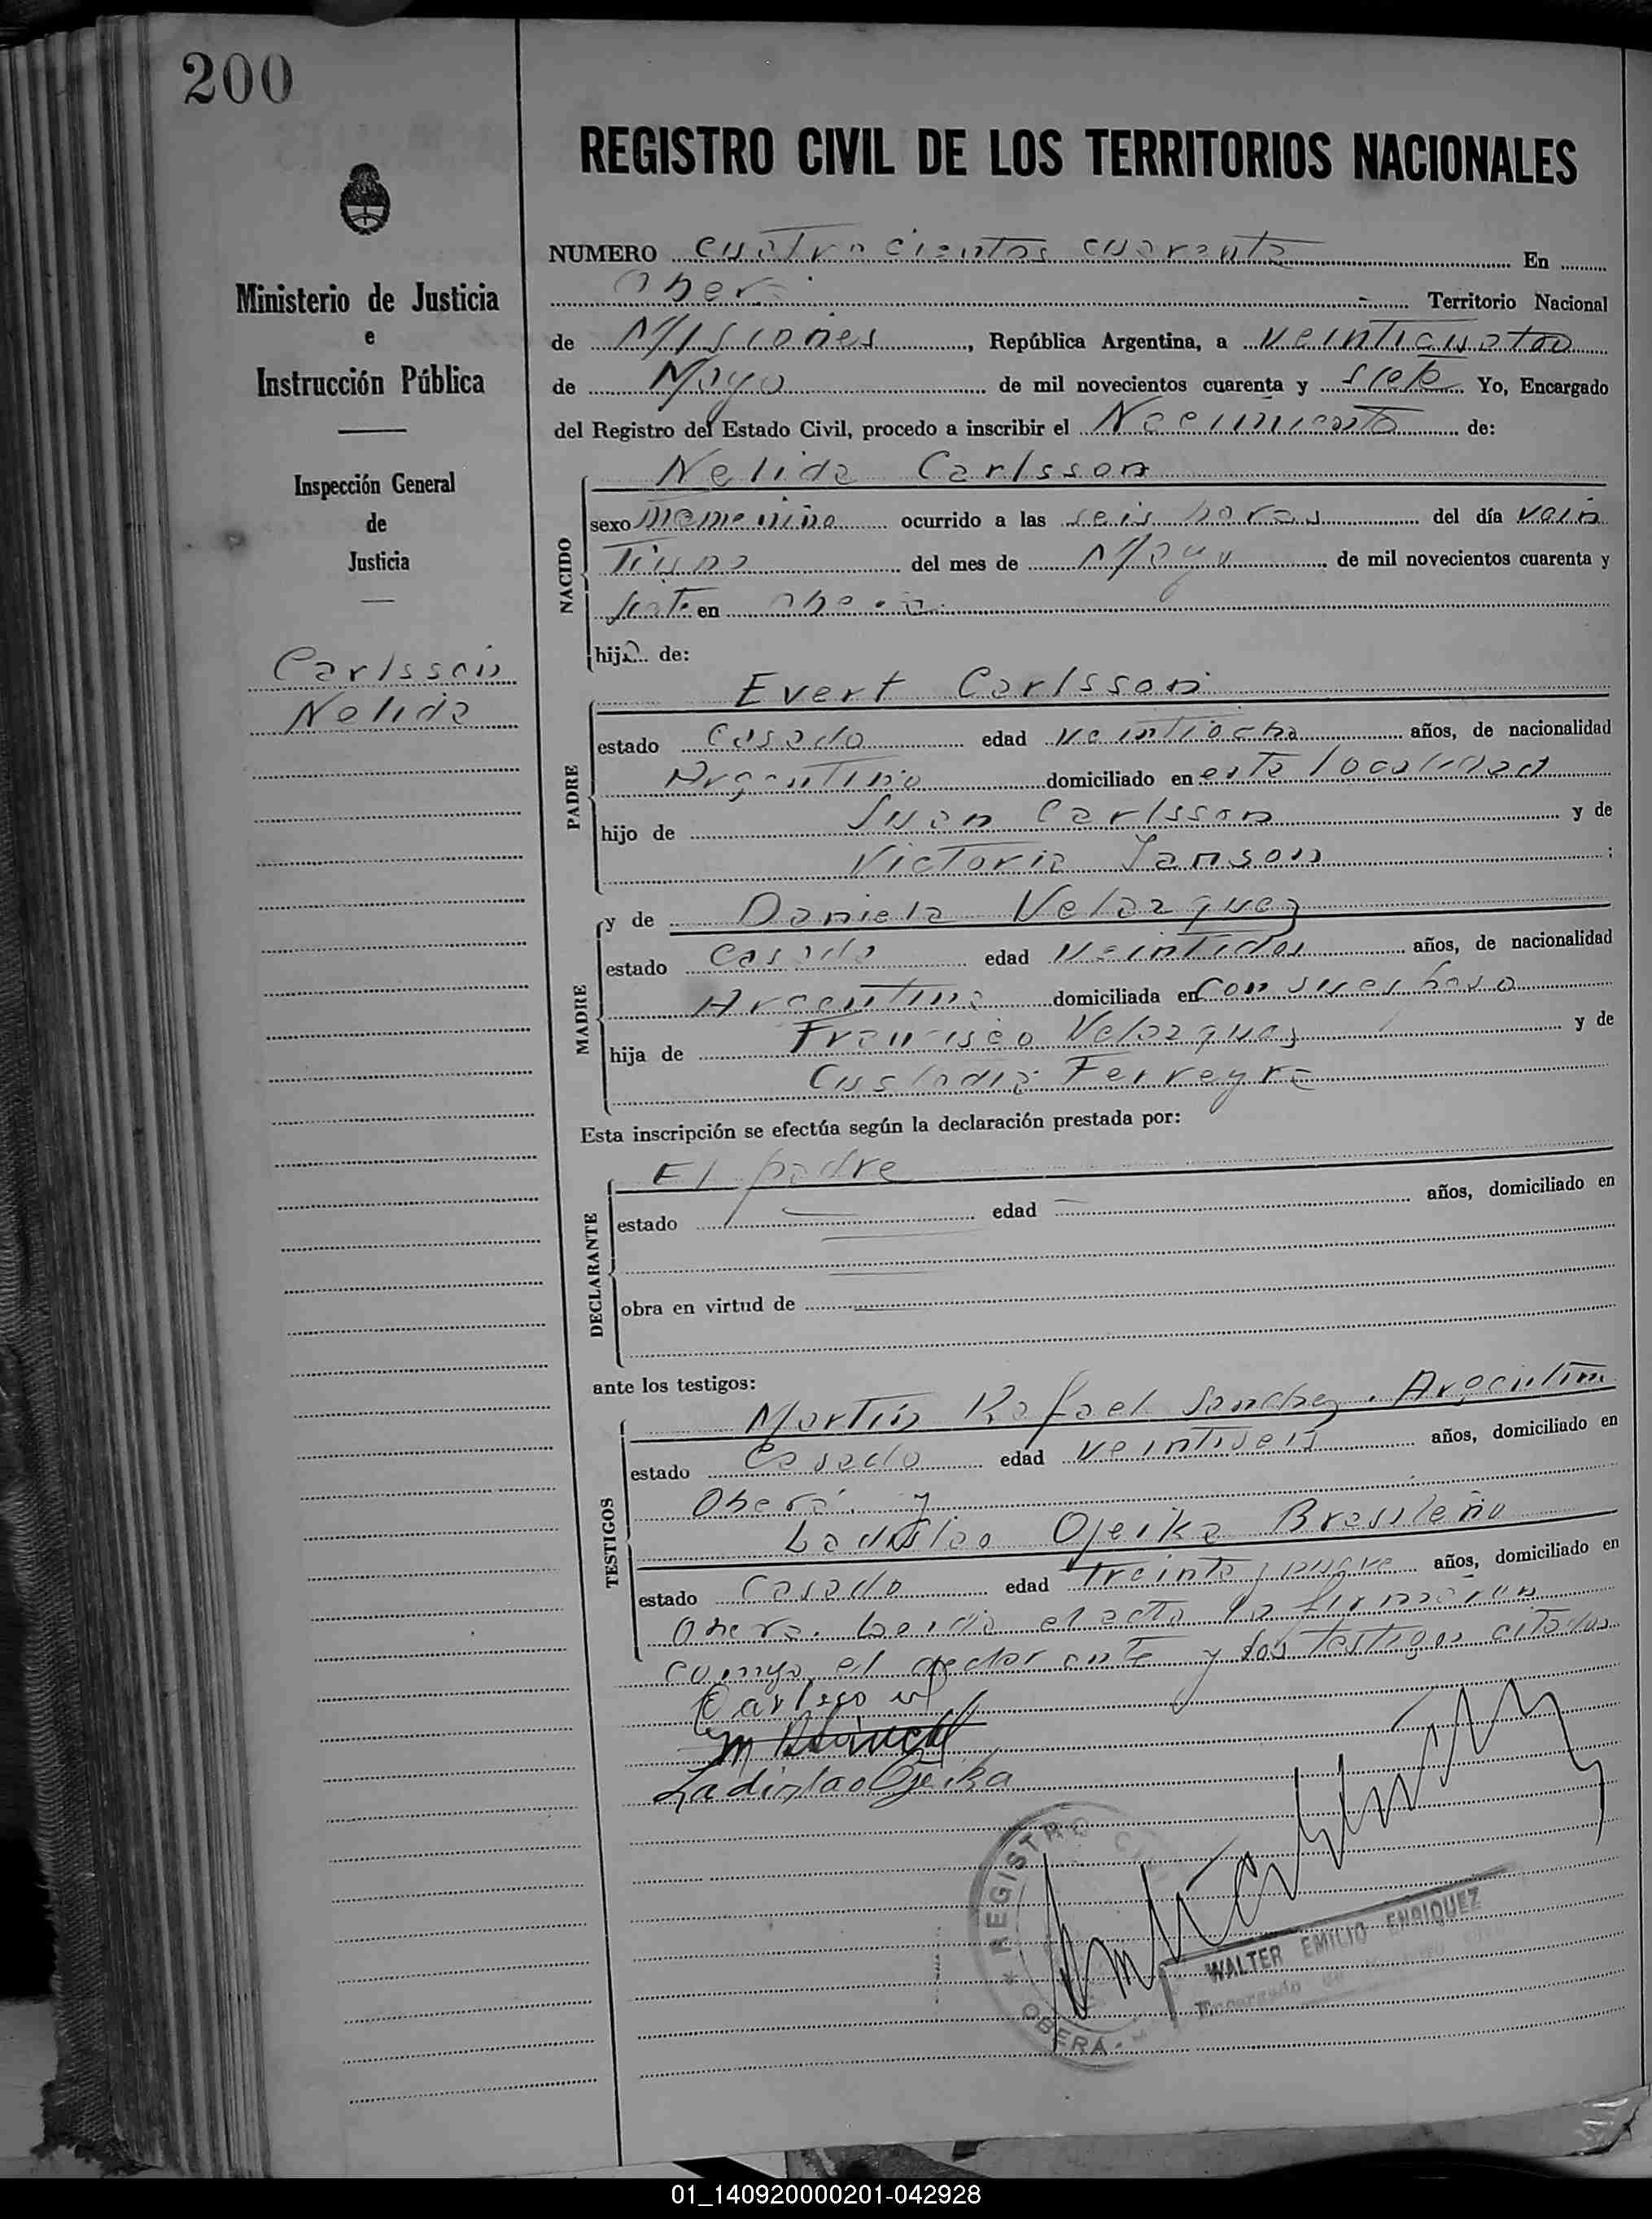 200
REGISTRO CIVIL DE LOS TERRITORIOS NACIONALES
Ministerio de Justicia
e
Instrucción Pública
Inspección General
de
Justicia
Carlsson
Nelida
NUMERO cuatrocientos cuarenta En
Oberá Territorio Nacional
de Misiones, República Argentina, a veinticuatro
de Mayo de mil novecientos cuarenta y siete Yo, Encargado
del Registro del Estado Civil, procedo a inscribir el Nacimiento de:
NACIDO
Nelida Carlsson
sexo femenino ocurrido a las seis horas del día vein
tiuno del mes de Mayo de mil novecientos cuarenta y
siete en Oberá
hija de:
PADRE
Evert Carlsson
estado Casado edad veintiocho años, de nacionalidad
Argentino domiciliado en esta localidad
hijo de Juan Carlsson y de
Victoria Janson ;
MADRE
y de Daniela Velazquez
estado Casada edad veintidos años, de nacionalidad
Argentina domiciliada en con su esposo
hija de Francisco Velazquez y de
Custodia Ferreyra
Esta inscripción se efectúa según la declaración prestada por:
DECLARANTE
El padre
estado edad años, domiciliado en
obra en virtud de
ante los testigos:
TESTIGOS
Martín Rafael Sanchez. Argentino
estado Casado edad veintiseis años, domiciliado en
Oberá. y
Ladislao Ojeika Brasileño
estado Casado edad treinta y nueve años, domiciliado en
Oberá. Leída el acta la firmaron
conmigo el declarante y los testigos citados
Ladislao Ojeika
REGISTRO CIVIL
* OBERÁ - M
WALTER EMILIO ENRIQUEZ
Encargado de
01_140920000201-042928